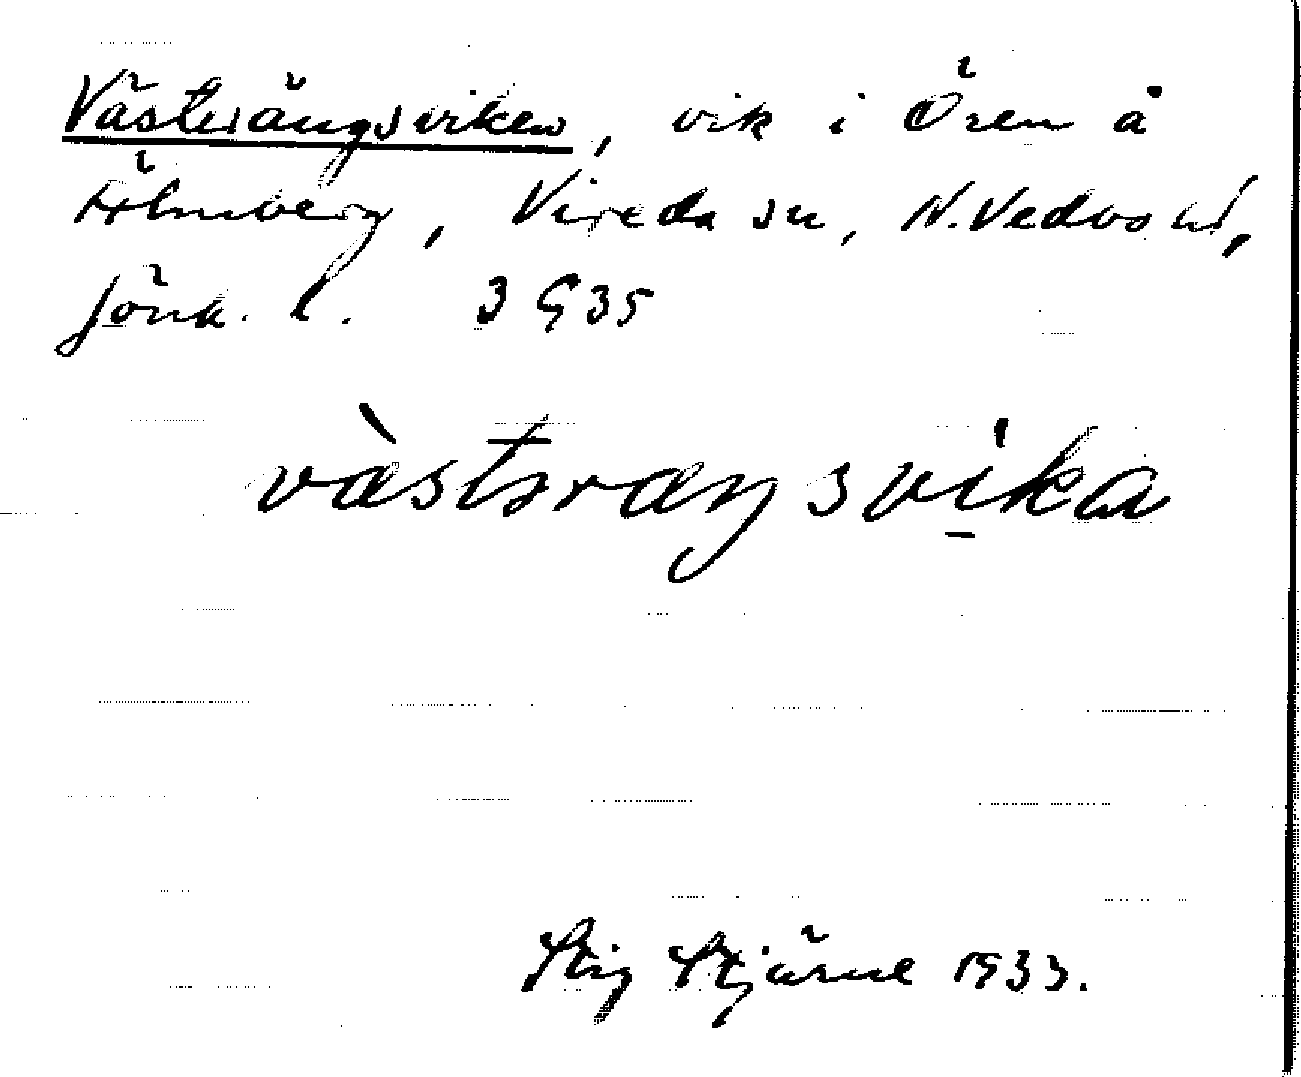 Västerängsviken, vik i Ören å
Hölmberg, Vireda sn, N. Vedbo hd,
Jönk. l. 3 G 35
vàstəraŋsvika
Stig Stjärne 1933.